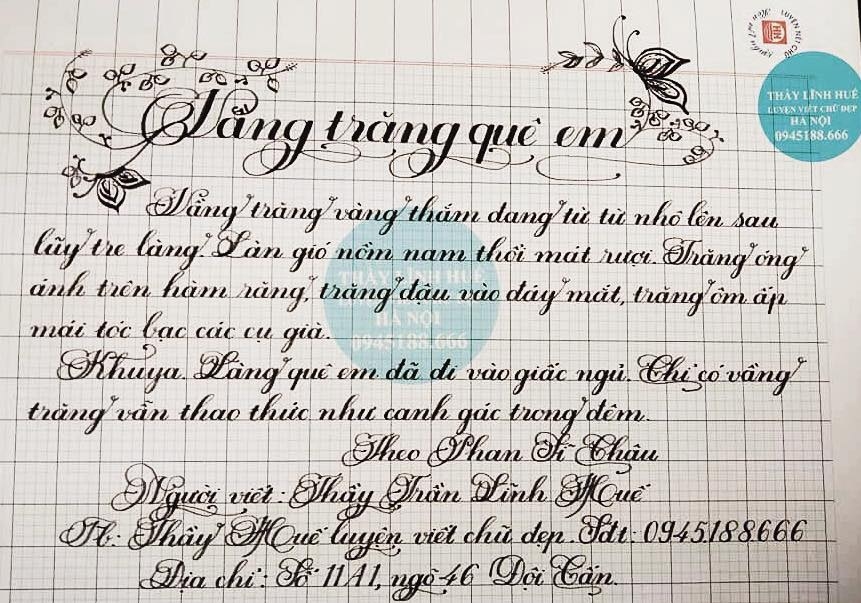 Vầng trăng quê em
THẦY LĨNH HUẾ
LUYỆN VIẾT CHỮ ĐẸP
HÀ NỘI
0945188.666
Vầng trăng vàng thắm đang từ từ nhô lên sau
lũy tre làng. Làn gió nồm nam thổi mát rượi. Trăng óng
ánh trên hàm răng, trăng đậu vào đáy mắt, trăng ôm ấp
mái tóc bạc các cụ già.
THẦY LĨNH HUẾ
HÀ NỘI
0945188.666
Khuya. Làng quê em đã đi vào giấc ngủ. Chỉ có vầng
trăng vẫn thao thức như canh gác trong đêm.
Theo Phan Sĩ Châu
Người viết: Thầy Trần Lĩnh Huế
Fb: Thầy Huế luyện viết chữ đẹp. Sđt: 0945.188.666
Địa chỉ: Số 11A1, ngõ 46 Đội Cấn.